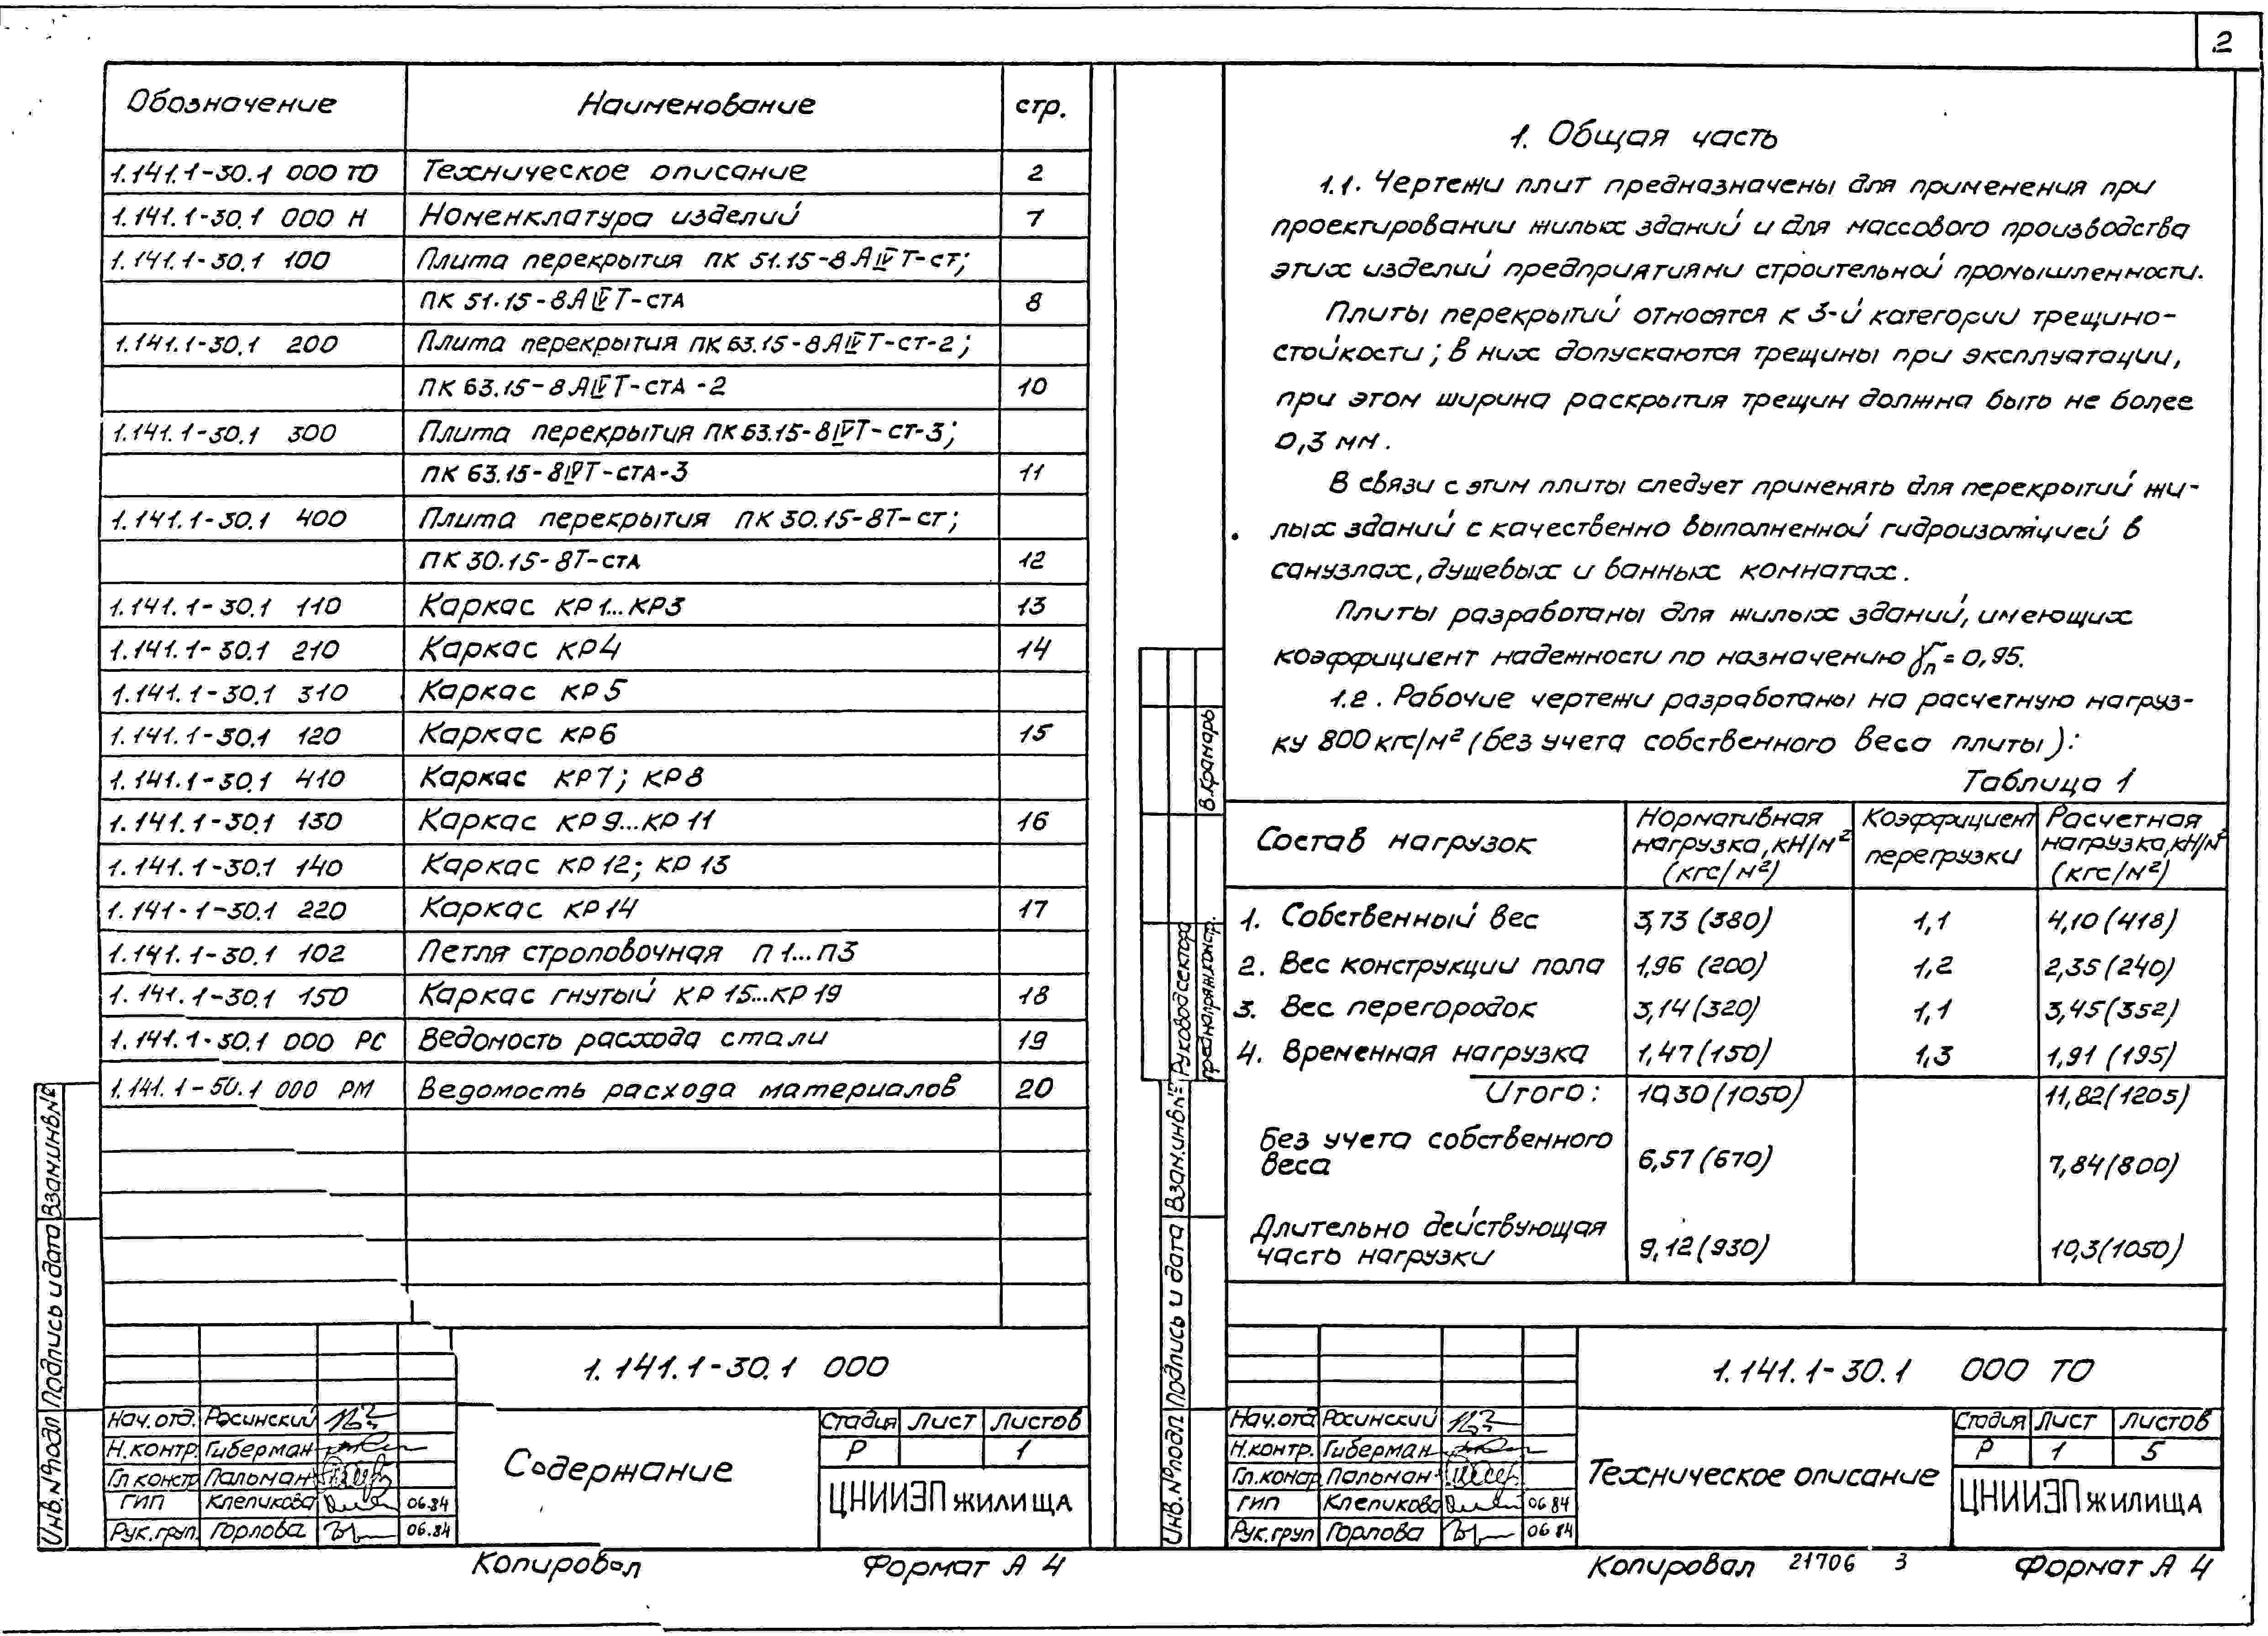 2
Обозначение Наименование стр.
1.141.1-30.1 000 ТО Техническое описание 2
1.141.1-30.1 000 Н Номенклатура изделий 7
1.141.1-30.1 100 Плита перекрытия ПК 51.15-8АⅣТ-ст;
ПК 51.15-8АⅣТ-стА 8
1.141.1-30.1 200 Плита перекрытия ПК 63.15-8АⅣТ-ст-2;
ПК 63.15-8АⅣТ-стА-2 10
1.141.1-30.1 300 Плита перекрытия ПК 63.15-8ⅣТ-ст-3;
ПК 63.15-8ⅣТ-стА-3 11
1.141.1-30.1 400 Плита перекрытия ПК 30.15-8Т-ст;
ПК 30.15-8Т-стА 12
1.141.1-30.1 110 Каркас КР1...КР3 13
1.141.1-30.1 210 Каркас КР4 14
1.141.1-30.1 310 Каркас КР5
1.141.1-30.1 120 Каркас КР6 15
1.141.1-30.1 410 Каркас КР7; КР8
1.141.1-30.1 130 Каркас КР9...КР11 16
1.141.1-30.1 140 Каркас КР12; КР13
1.141.1-30.1 220 Каркас КР14 17
1.141.1-30.1 102 Петля строповочная П1...П3
1.141.1-30.1 150 Каркас гнутый КР15...КР19 18
1.141.1-30.1 000 РС Ведомость расхода стали 19
1.141.1-50.1 000 РМ Ведомость расхода материалов 20
Взам.инв.№
Подпись и дата
Инв.№подл
1.141.1-30.1 000
Нач.отд. Росинский
Н.контр. Гиберман
Гл констр Пальман
ГИП Клепикова 06.84
Рук.груп. Горлова 06.84
Содержание
Стадия Лист Листов
Р 1
ЦНИИЭП жилища
Копировал Формат А 4
1. Общая часть
1.1. Чертежи плит предназначены для применения при
проектировании жилых зданий и для массового производства
этих изделий предприятиями строительной промышленности.
Плиты перекрытий относятся к 3-й категории трещино-
стойкости; в них допускаются трещины при эксплуатации,
при этом ширина раскрытия трещин должна быть не более
0,3 мм.
В связи с этим плиты следует применять для перекрытий жи-
лых зданий с качественно выполненной гидроизоляцией в
санузлах, душевых и ванных комнатах.
Плиты разработаны для жилых зданий, имеющих
коэффициент надежности по назначению γn = 0,95.
1.2. Рабочие чертежи разработаны на расчетную нагруз-
ку 800 кгс/м² (без учета собственного веса плиты):
Таблица 1
Состав нагрузок Нормативная нагрузка, кН/м² (кгс/м²) Коэффициент перегрузки Расчетная нагрузка, кН/м² (кгс/м²)
1. Собственный вес 3,73 (380) 1,1 4,10 (418)
2. Вес конструкции пола 1,96 (200) 1,2 2,35 (240)
3. Вес перегородок 3,14 (320) 1,1 3,45 (352)
4. Временная нагрузка 1,47 (150) 1,3 1,91 (195)
Итого: 10,30 (1050) 11,82 (1205)
Без учета собственного
веса 6,57 (670) 7,84 (800)
Длительно действующая
часть нагрузки 9,12 (930) 10,3 (1050)
В.Крамарь
Руковод.сектора
преднапряж.констр.
Взам.инв.№
Подпись и дата
Инв.№подл
1.141.1-30.1 000 ТО
Нач.отд Росинский
Н.контр. Гиберман
Гл.констр Пальман
ГИП Клепикова 06.84
Рук.груп Горлова 06.84
Техническое описание
Стадия Лист Листов
Р 1 5
ЦНИИЭП жилища
Копировал 21706 3 Формат А 4